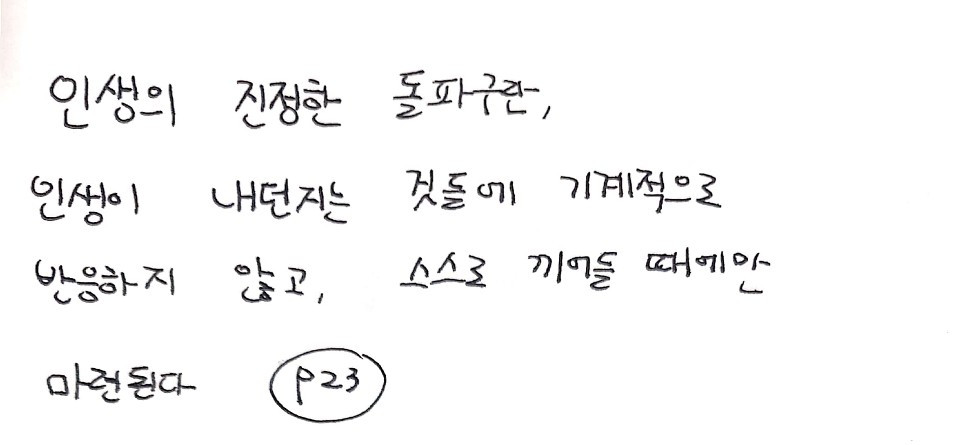 인생의 진정한 돌파구란,
인생이 내던지는 것들에 기계적으로
반응하지 않고, 스스로 끼어들 때에만
마련된다 p23